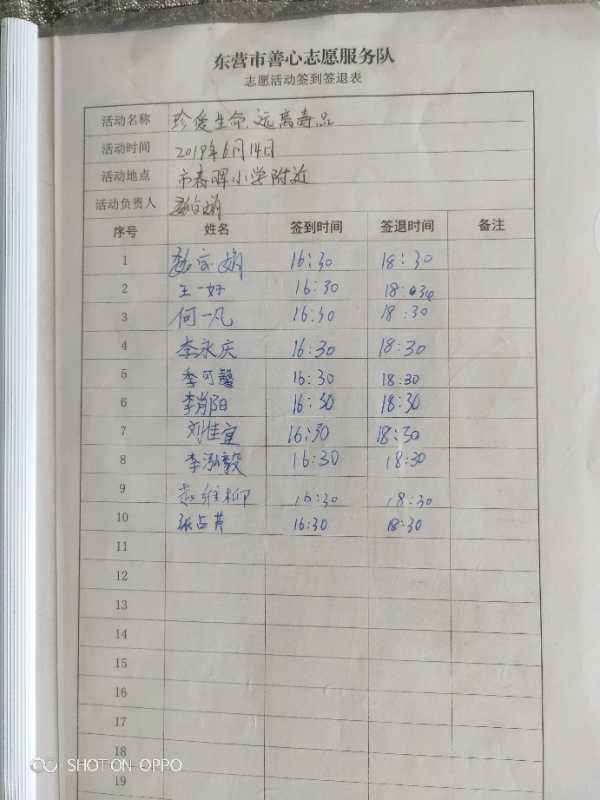 东营市善心志愿服务队
志愿活动签到签退表
活动名称 珍爱生命 远离毒品
活动时间 2019年6月14日
活动地点 市春晖小学附近
活动负责人
序号 姓名 签到时间 签退时间 备注
1 16:30 18:30
2 王一好 16:30 18:30
3 何一凡 16:30 18:30
4 李永庆 16:30 18:30
5 季可馨 16:30 18:30
6 李肖阳 16:30 18:30
7 刘佳宜 16:30 18:30
8 李泓毅 16:30 18:30
9 16:30 18:30
10 张占芹 16:30 18:30
11
12
13
14
15
16
17
18
19
SHOT ON OPPO